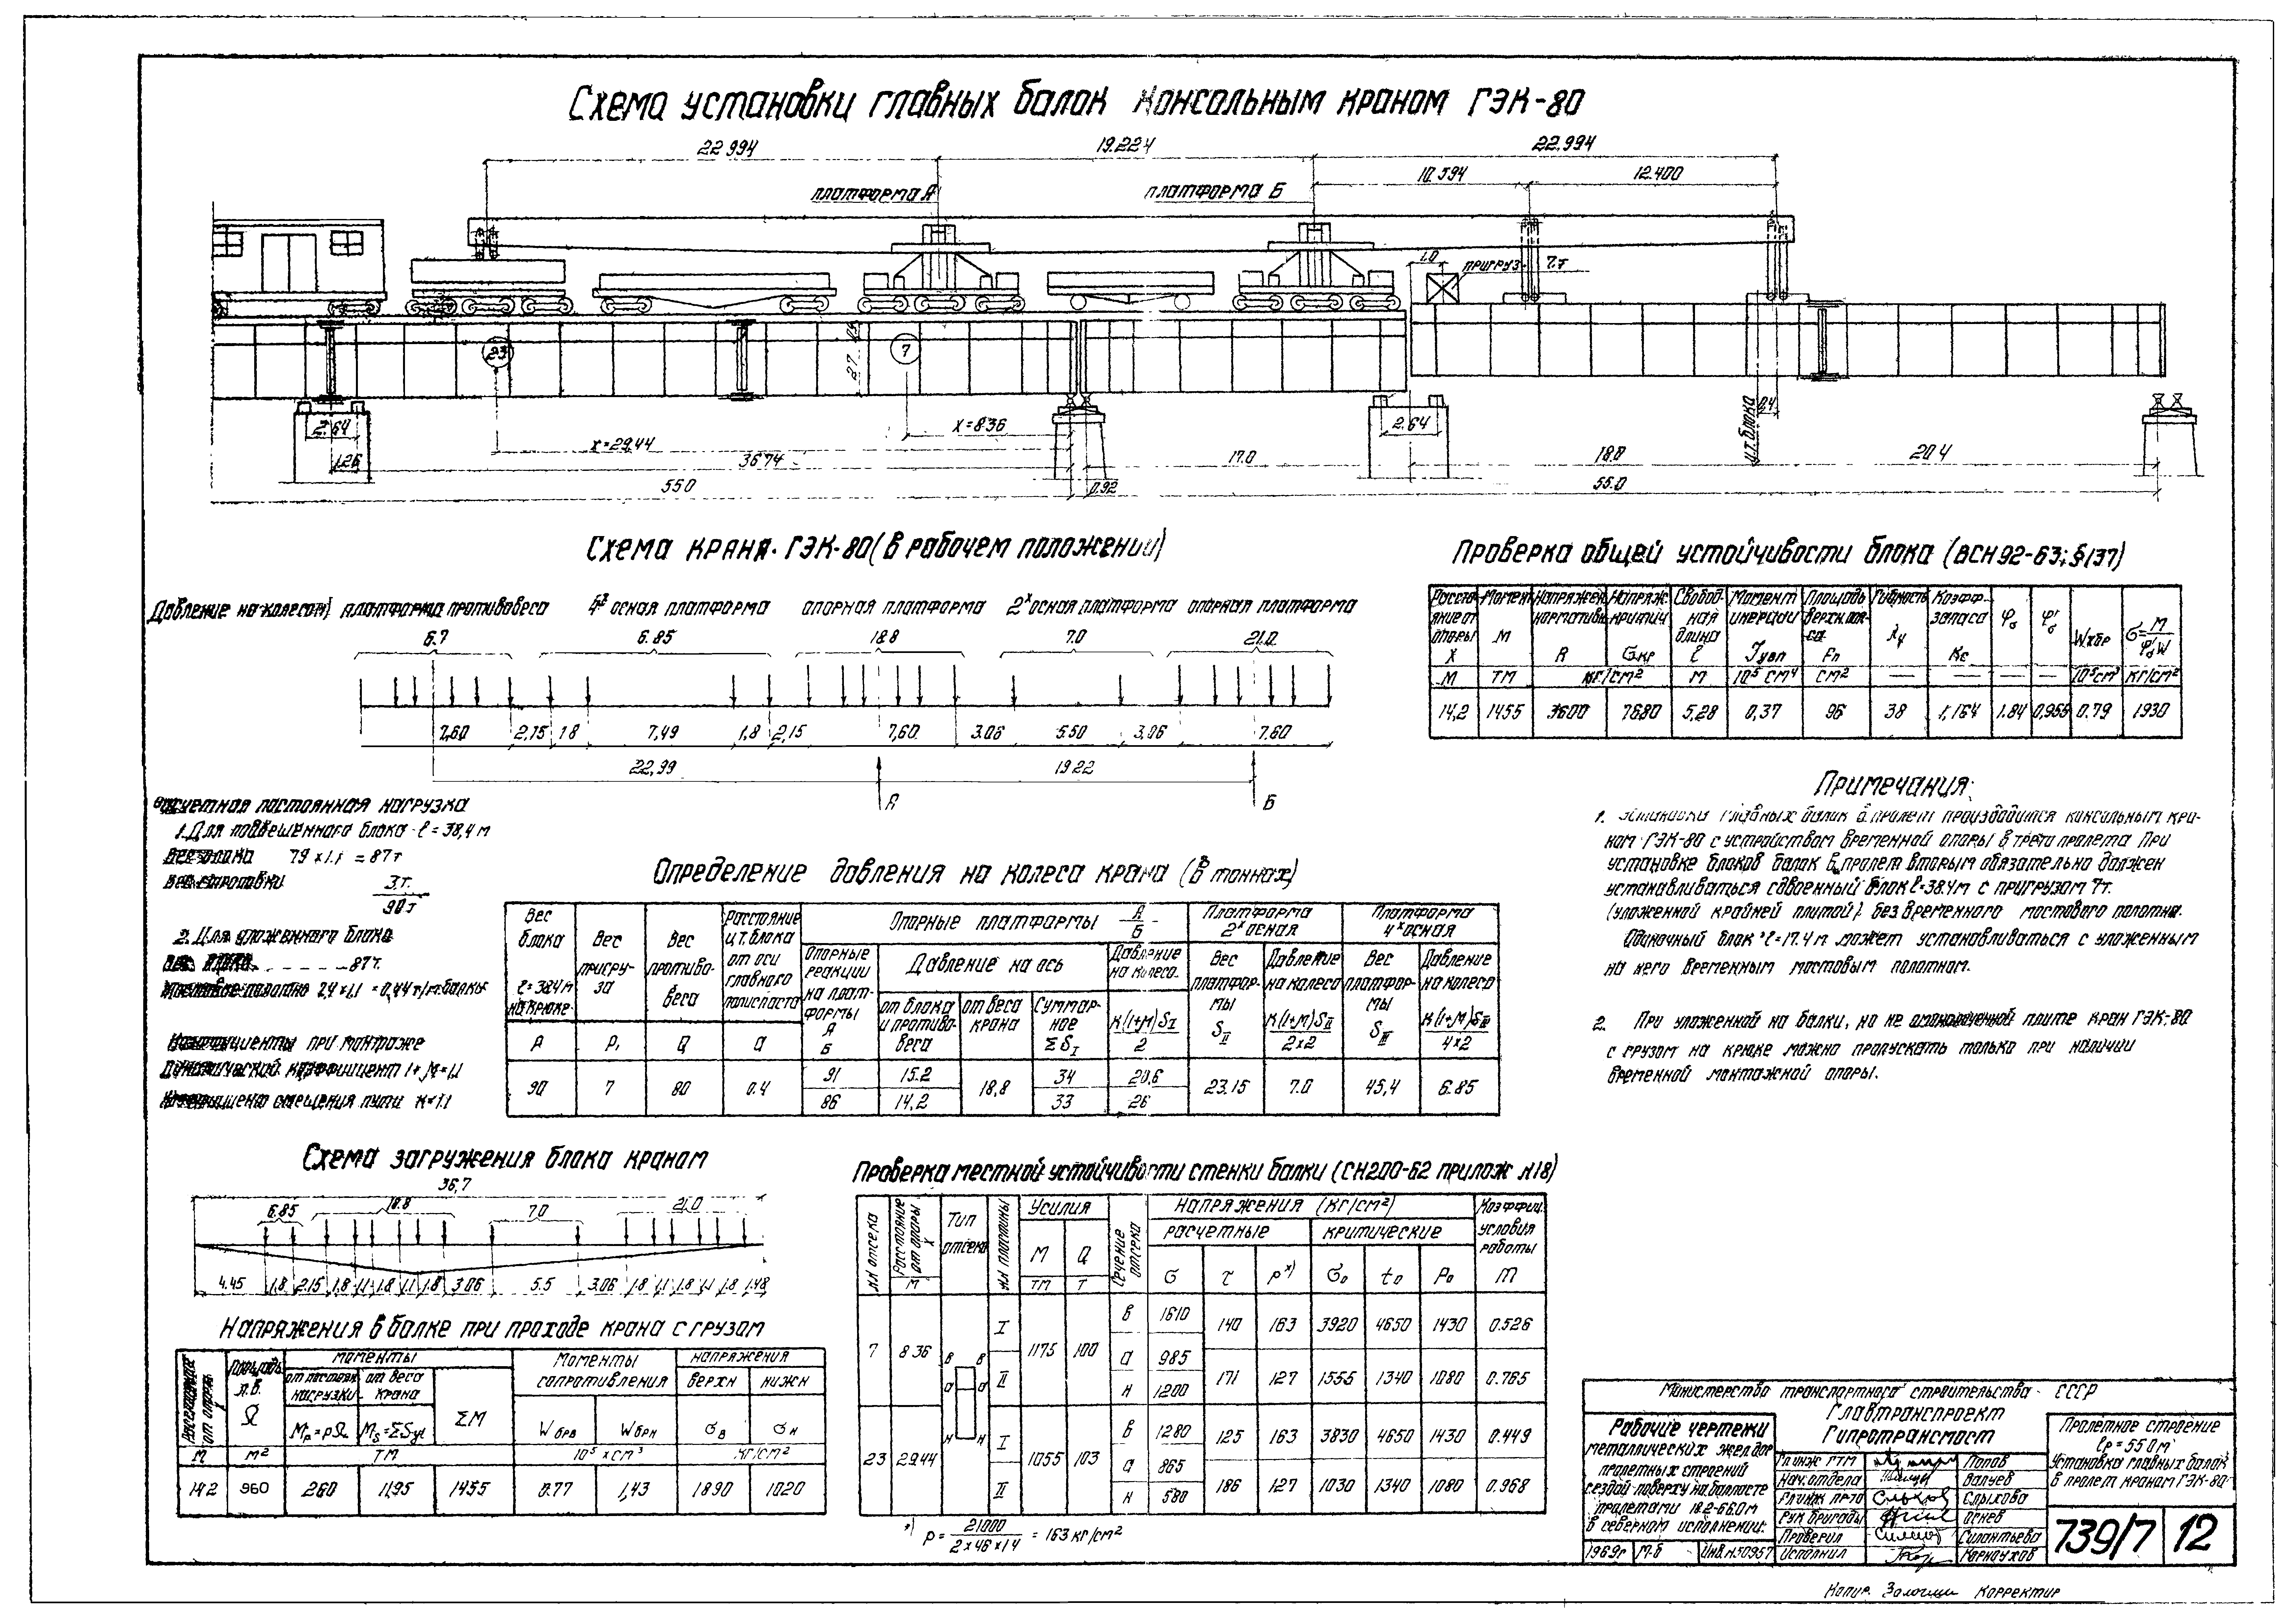 Схема установки главных балок консольным краном ГЭК-80
22.994 19.224 22.994
10.594 12.400
платформа А платформа Б
1.0 пригруз 7т
23 7
2.64 x=29.44 x=8.36 2.64 0.4
ц.т.блока
1.26 36.74 17.0 18.0 20.4
55.0 0.92 55.0
Схема крана ГЭК-80 (в рабочем положении)
Давление на колесо платформа противовеса 4х осная платформа опорная платформа 2х осная платформа опорная платформа
6.7 6.85 18.8 7.0 21.0
7,60 2,15 1.8 7,49 1,8 2,15 7,60 3.06 5.50 3,06 7,60
22,99 19.22
А Б
Проверка общей устойчивости блока (ВСН 92-63; §137)
Расстояние от опоры X | Момент М | Напряжен. нормативн. R | Напряж. критич. σкр | Свободная длина ℓ | Момент инерции | Площадь верхн. пояса Fп | Гибкость λy | Коэфф. запаса | φб | φ'б | Wхбр | σ=M/φ'бW
М | тм | кг/см² | м | 10⁵ см⁴ | см² | — | — | — | — | 10⁵см³ | кг/см²
14,2 | 1455 | 3600 | 7680 | 5,28 | 0,37 | 96 | 38 | 1,164 | 1.84 | 0,955 | 0.79 | 1930
Расчетная постоянная нагрузка
1. Для подвешенного блока ℓ=38,4м
Вес блока 79×1.1 = 87т
3т.
90т
2. Для уложенного блока
87т.
2,4×1,1 = 0,44 т/м.балки
Коэффициенты при монтаже
Динамический коэффициент 1+М=1,1
смещения пути к=1.1
Примечания:
1. Установка главных балок в пролет производится консольным кра-
ном ГЭК-80 с устройством временной опоры в трети пролета. При
установке блоков балок в пролет вторым обязательно должен
устанавливаться сдвоенный блок ℓ=38.4м с пригрузом 7т.
(уложенной крайней плитой) без временного мостового полотна.
Одиночный блок ℓ=17.4м может устанавливаться с уложенным
на него временным мостовым полотном.
2. При уложенной на балки, но не омоноличенной плите кран ГЭК-80
с грузом на крюке можно пропускать только при наличии
временной монтажной опоры.
Определение давления на колеса крана (в тоннах)
Вес блока ℓ=38.4м на крюке | Вес пригруза | Вес противовеса | Расстояние ц.т.блока от оси главного полиспаста | Опорные платформы А/Б | Платформа 2х осная | Платформа 4х осная
Опорные реакции на платформы А Б | Давление на ось | Давление на колесо | Вес платформы | Давление на колесо | Вес платформы | Давление на колесо
от блока и противовеса | от веса крана | Суммарное ΣSI | к(1+М)SI/2 | SII | к(1+М)SII/2×2 | SIII | к(1+М)SIII/4×2
P | P₁ | Q | a
90 | 7 | 80 | 0.4 | 91 | 15.2 | 18,8 | 34 | 20,6 | 23.15 | 7.0 | 45,4 | 6.85
86 | 14,2 | 33 | 26
Схема загружения блока краном
36,7
6.85 18.8 7.0 21,0
4.45 1,8 2.15 1,8 1,1 1.8 1.1 1.8 3.06 5.5 3.06 1.8 1,1 1.8 1,1 1.8 1.48
Напряжения в балке при проходе крана с грузом
Расстояние от опоры X | Площадь л.в. Ω | моменты | Моменты сопротивления | напряжения
от постоян. нагрузки | от веса крана | ΣМ | верхн | нижн
Mр=pΩ | Ms=ΣSy | Wбрв | Wбрн | σв | σн
М | м² | тм | 10⁵×см³ | кг/см²
14.2 | 960 | 260 | 1195 | 1455 | 0.77 | 1,43 | 1890 | 1020
Проверка местной устойчивости стенки балки (СН200-62 прилож №18)
NN отсека | Расстояние от опоры X | Тип отсека | NN пластины | Усилия | Сечение отсека | Напряжения (кг/см²) | Коэффиц. условия работы
М | Q | расчетные | критические
м | тм | т | σ | τ | p х) | σ₀ | t₀ | P₀ | m
7 | 8.36 | I | 1175 | 100 | в | 1610 | 140 | 163 | 3920 | 4650 | 1430 | 0.526
а | 985
II | н | 1200 | 171 | 127 | 1555 | 1340 | 1080 | 0.765
23 | 29.44 | I | 1055 | 103 | в | 1280 | 125 | 163 | 3830 | 4650 | 1430 | 0.449
а | 865
II | н | 580 | 186 | 127 | 1030 | 1340 | 1080 | 0.968
х) p = 21000/2×46×1.4 = 163 кг/см²
Министерство транспортного строительства СССР
Главтранспроект
Гипротрансмост
Рабочие чертежи
металлических желдор
пролетных строений
с ездой поверху на балласте
пролетами 18.2-66.0м
в северном исполнении:
Гл.инж ГТМ Попов
Нач.отдела Валуев
Гл.инж пр-та Слыхова
Рук бригады Огнев
Проверил Силантьева
Исполнил Карнаухов
1969г М-б Инв.№50957
Пролетное строение
ℓр=55.0м
Установка главных балок
в пролет краном ГЭК-80
739/7 12
Копир. Корректир